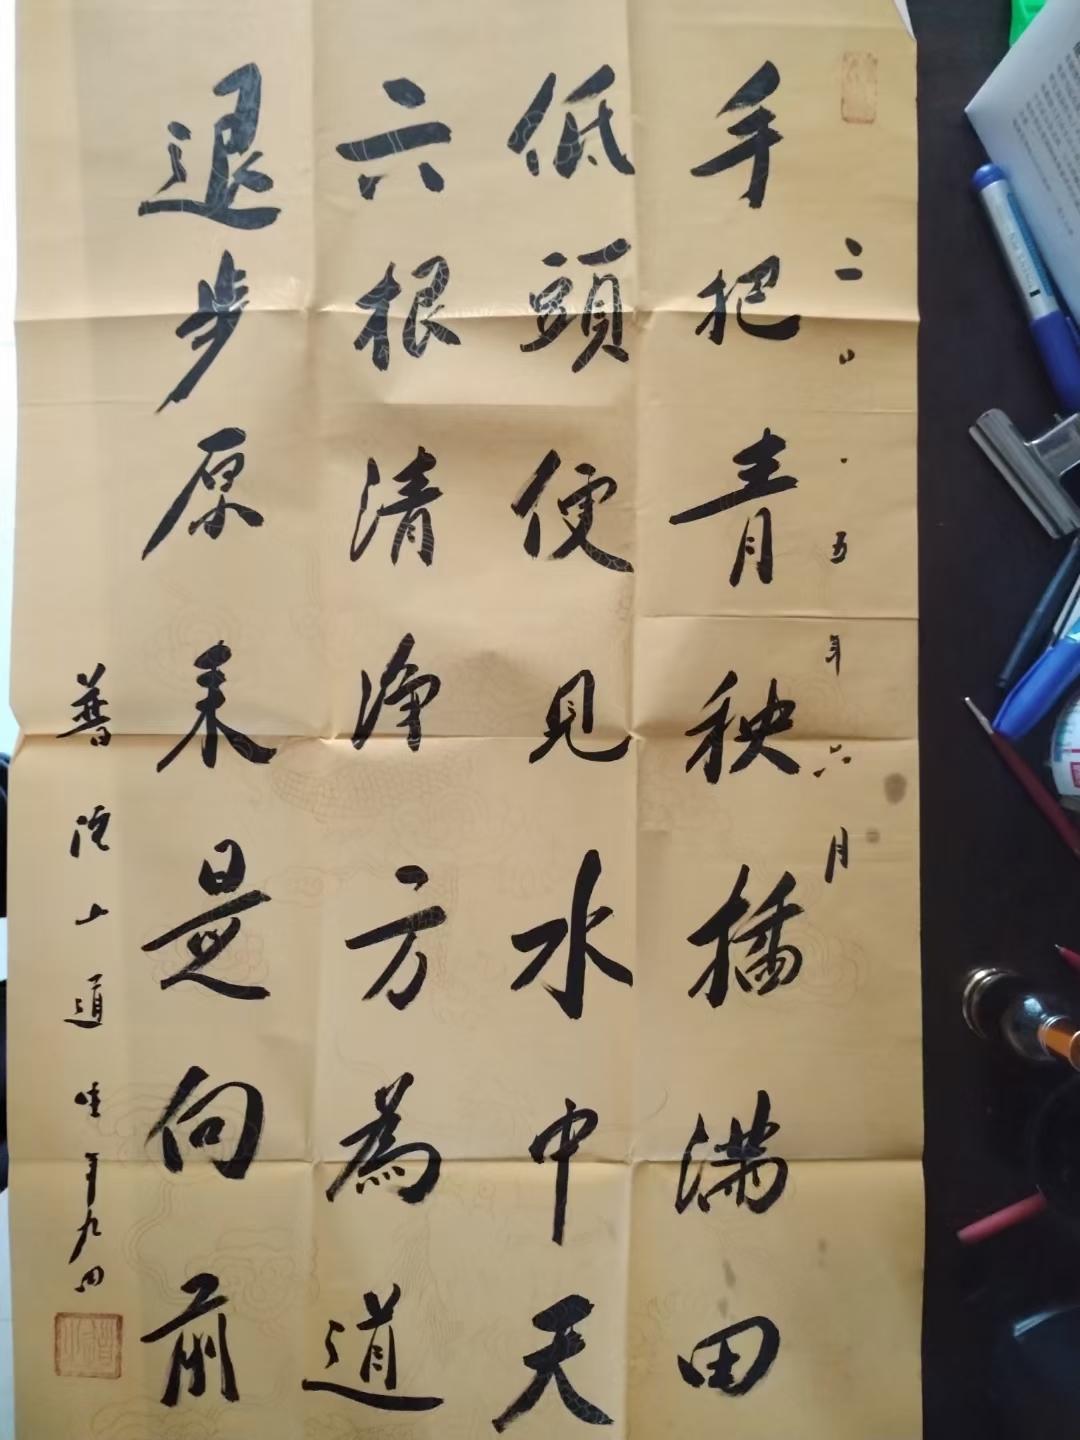 二〇一五年六月
手把青秧插满田
低頭便見水中天
六根清净方為道
退步原来是向前
普陀山道生年九四